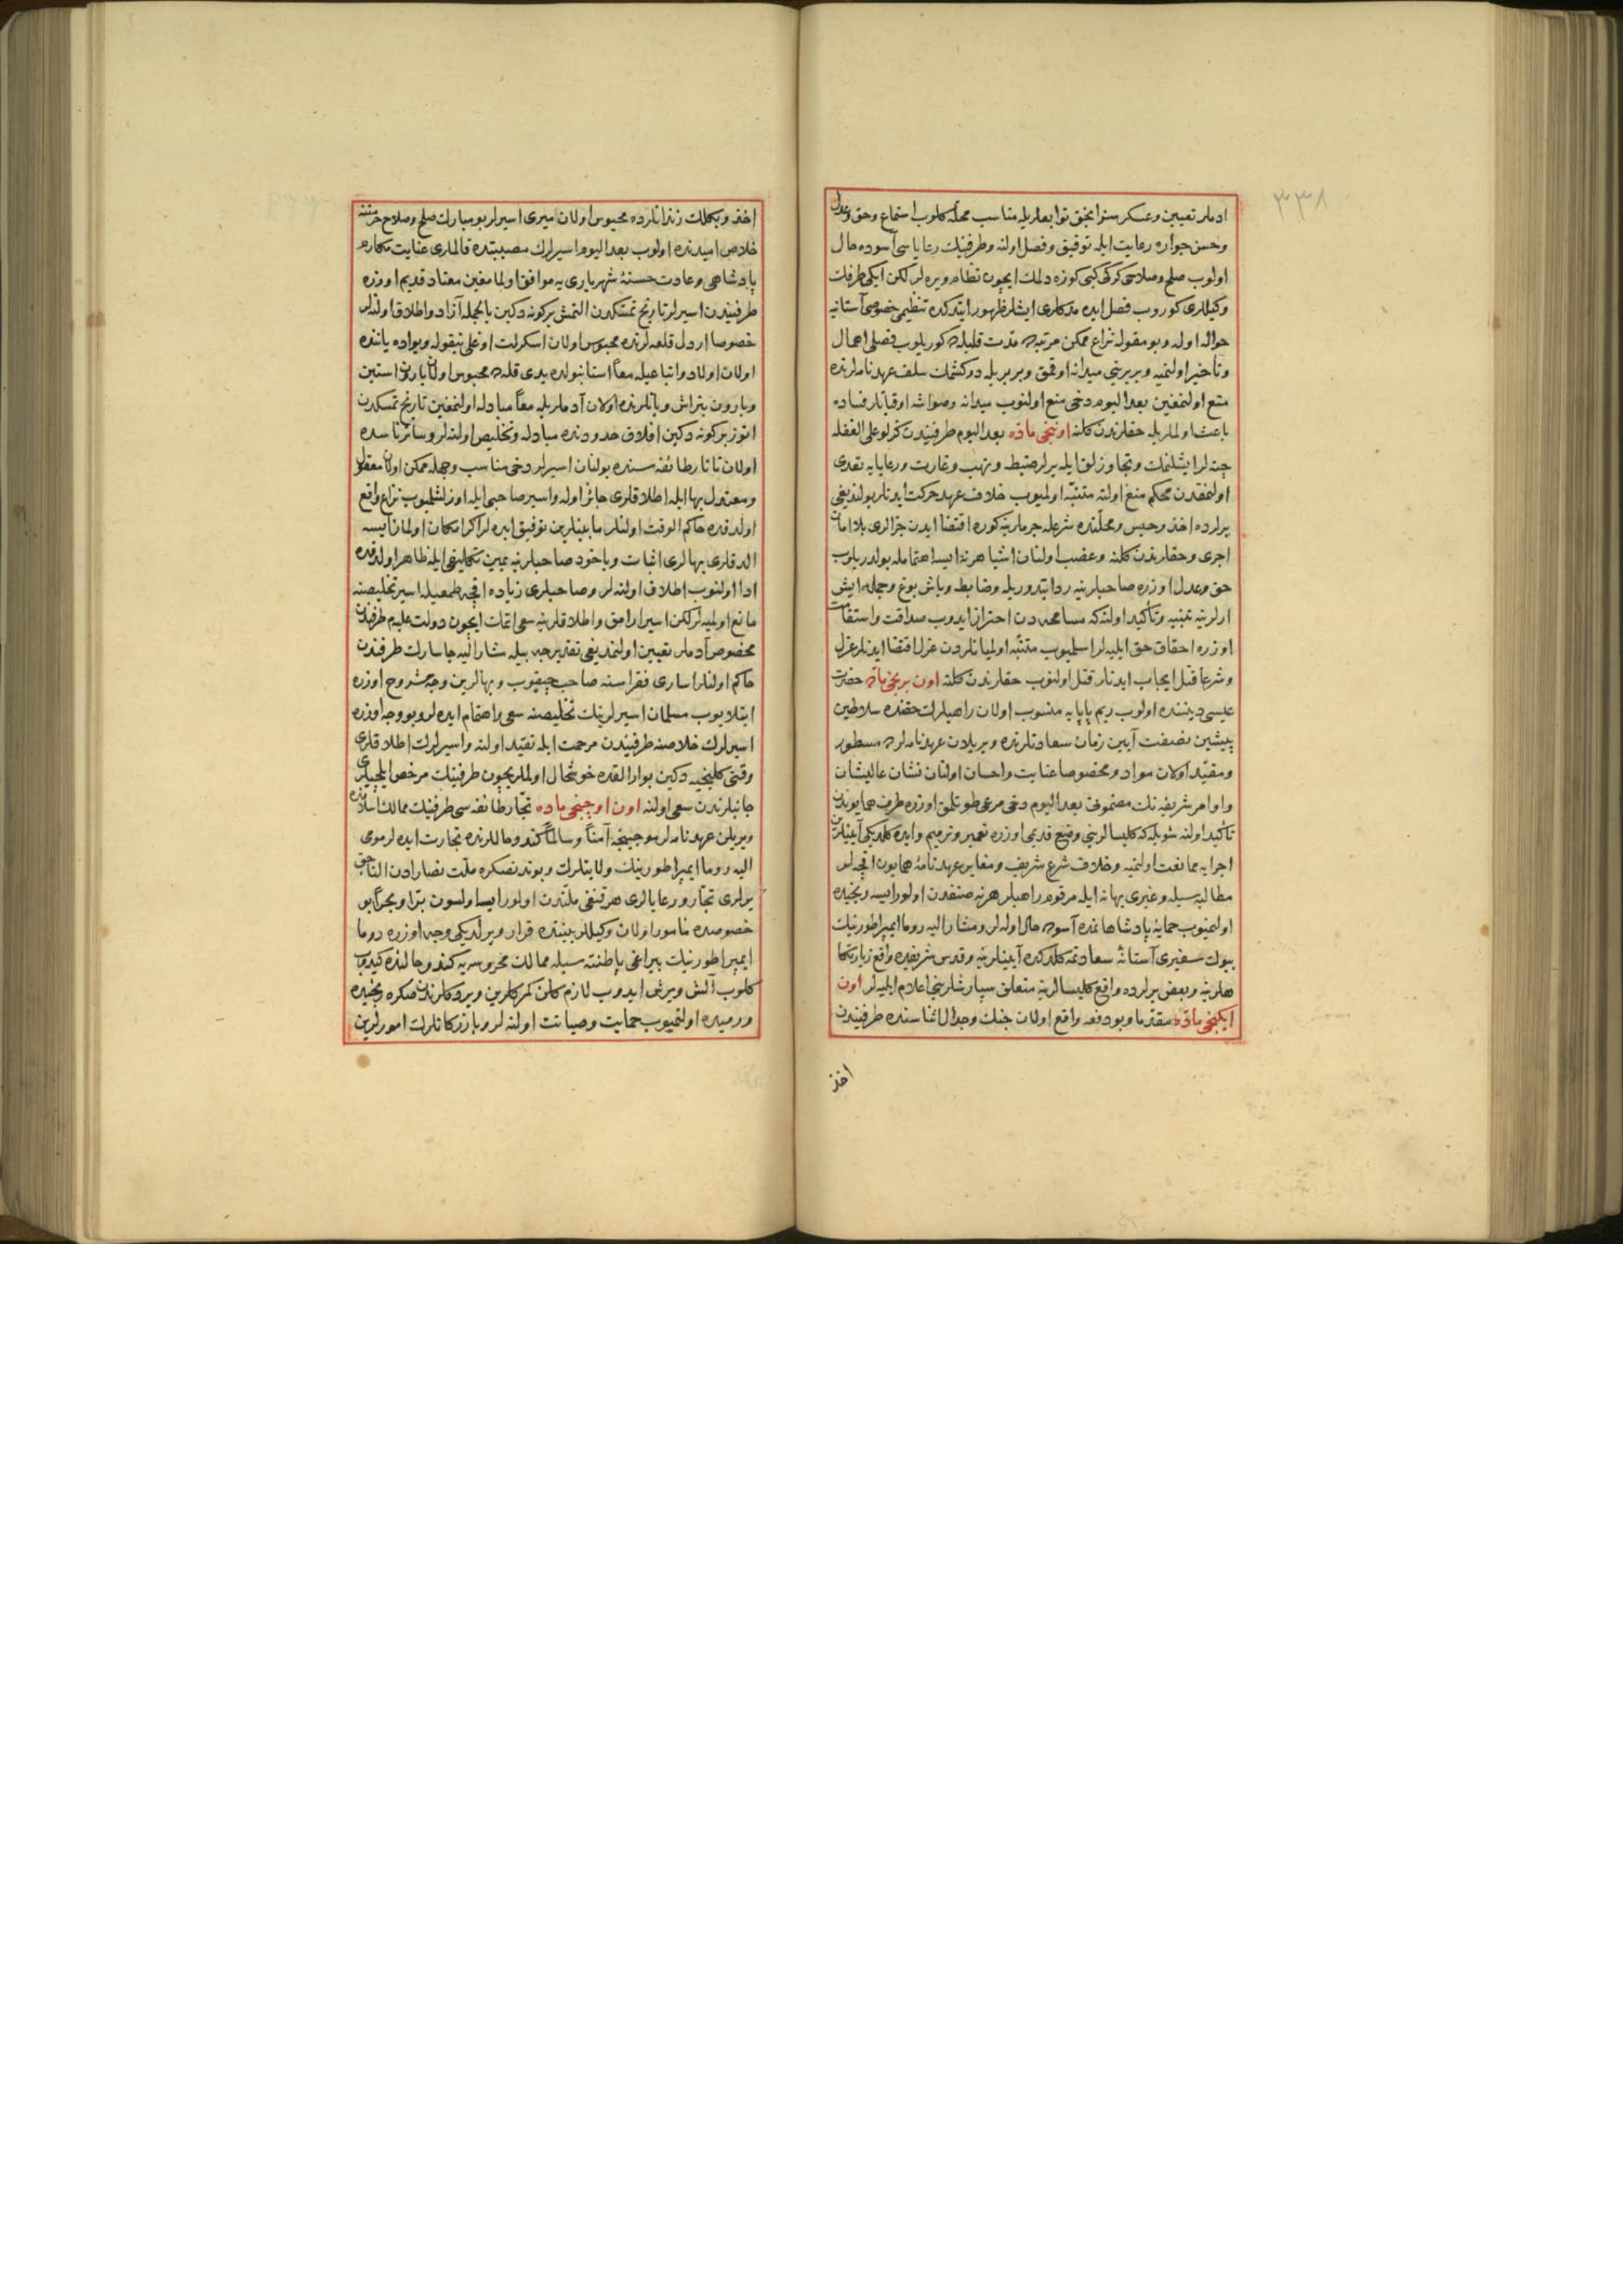 ٣٣٨
ادملر تعيين وعسكرسز انجق توابعلريله مناسب محله كلوب استماع وحق وعدل
وحسن جواره رعايت ايله توفيق وفصل اولنه وطرفينك رعاياسى آسوده حال
اولوب صلح وصلاحى كرك كبى كوزه دلمك ايچون نظام ويره لر لكن ايكى طرفك
وكيللرى كوروب فصل ايده مدكلرى ايشلر ظهور ايتدكده تنظيمى خصوصى آستانيه
حواله اولنه وبو مقوله نزاع ممكن مرتبه مدت قليله ده كوريلوب فصلى اهمال
وتأخير اولنميه وبربرينى ميدانه اوقمق وبربريله دوكشمك سلف عهدنامه لرنده
منع اولنمغين بعد اليوم دخى منع اولنوب ميدانه وصواشه اوقيانلر فساده
باعث اولملريله حقلرندن كلنه اوننجى ماده بعد اليوم طرفيندن كزلو على الغفله
چته لر ايشلنمك وتجاوزلق ايله يرلر ضبط ونهب وغارت ورعايايه تعدى
اولنمقدن محكم منع اولنه متنبه اولميوب خلاف عهد حركت ايدنلر بولنديغى
يرلرده اخذ وحبس ومحلنده شرعله جرملرينه كوره اقتضا ايدن جزالرى بلا امان
اجرى وحقلرندن كلنه وغصب اولنان اشيا هر نه ايسه اهتمامله بولدريلوب
حق وعدل اوزره صاحبلرينه رد ايتدوريله وضابط وباش بوغ وجمله ايش
ارلرينه تنبيه وتأكيد اولنه كه مسامحه دن احتراز ايدوب صداقت واستقامت
اوزره احقاق حق ايليه لر اسليوب متنبه اولميانلردن عزل اقتضا ايدنلر عزل
وشرعا قتل ايجاب ايدنلر قتل اولنوب حقلرندن كلنه اون برنجى ماده حضرت
عيسى ديننده اولوب ريم پاپايه منسوب اولان راهبلرك حقنده سلاطين
پيشين نصفت آيين زمان سعادتلرنده ويريلان عهدنامه لرده مسطور
ومقيد اولان مواد ومخصوصا عنايت واحسان اولنان نشان عاليشان
واوامر شريفه نك مضمونى بعد اليوم دخى مرعى طوتلمق اوزره طرف همايوندن
تأكيد اولنه شويله كه كليسالرينى وضع قديمى اوزره تعمير وترميم وايده كلدكى آيينلرين
اجرايه ممانعت اولنميه وخلاف شرع شريف ومغاير عهدنامه همايون اقچه لر
مطالبه سيله وغيرى بهانه ايله مرقوم راهبلر هر نه صنفدن اولور ايسه رنجيده
اولنميوب حمايه پادشاهانه مده آسوده حال اوله لر ومشار اليه روما ايمپراطورينك
بيوك سفيرى آستانه سعادتمه كلدكده آيينلرينه وقدس شريفده واقع زيارتكا
هلرينه وبعض يرلرده واقع كليسالرينه متعلق سپارشلرينى اعلام ايليه لر اون
ايكنجى ماده مقدما وبو دفعه واقع اولان جنك وجدال اثناسنده طرفيندن
اخذ
اخذ وبكلك زندانلرده محبوس اولان ميرى اسيرلر بو مبارك صلح وصلاح حرمتنه
خلاص اميدنده اولوب بعد اليوم اسيرلرك مصيبتده قالملرى عنايت مكارم
پادشاهى وعادت حسنه شهريارى يه موافق اولمامغين معتاد قديم اوزره
طرفيندن اسيرلر تاريخ تمسكدن التمش بر كونه دكين بالجمله آزاد واطلاق اولنه لر
خصوصا اردل قلعه لرنده محبوس اولان اسكرلت اوغلى نيقوله ويواده ياننده
اولان اولاد واتباعيله معاً استانبولده يدى قله ده محبوس اولان بارون استين
وبارون پتراش ويانلرنده اولان آدملريله معاً مبادله اولنمغين تاريخ تمسكدن
اتوز بر كونه دكين افلاق حدودنده مبادله وتخليص اولنه لر وسائر ناسده
اولان تاتار طائفه سنده بولنان اسيرلر دخى مناسب وجهله ممكن اولان معقول
ومعتدل بها ايله اطلاقلرى جائز اوله واسير صاحبى ايله اوزلشلميوب نزاع واقع
اولدقده حاكم الوقت اولنلر مابينلرين توفيق ايده لر اكر امكان اولماز ايسه
الدقلرى بهالرى اثبات وياخود صاحبلرينه يمين تكليفى ايله ظاهر اولدقده
ادا اولنوب اطلاق اولنه لر وصاحبلرى زياده اقچه طمعيله اسير تخليصنه
مانع اولميه لر لكن اسيرلر ارامق واطلاقلرينه سعى اتمك ايچون دولت عليه م طرفندن
مخصوص آدملر تعيين اولنمديغى تقديرجه بيله مشار اليه چاسارك طرفندن
حاكم اولنلر اسارى فقراسنه صاحب چيقوب وبهالرين وجه مشروح اوزره
ابتلايوب مسلمان اسيرلرينك تخليصنه سعى واهتمام ايده لر وبو وجه اوزره
اسيرلرك خلاصنه طرفيندن مرحمت ايله تقيد اولنه واسيرلرك اطلاقلرى
وقتى كلينجيه دكين بو ارالقده خوشحال اولملريچون طرفينك مرخص ايلچيلرى
جانبلرندن سعى اولنه اون اوچنجى ماده تجار طائفه سى طرفينك ممالك اسلاميه ده
ويريلن عهدنامه لر موجبنجه آمناً وسالماً كند وحاللرنده تجارت ايده لر مومى
اليه روما ايمپراطورينك ولايتلرك وبوندنصكره ملت نصارادن التاحق
يرلرى تجار ورعايالرى هر قنغى ملتدن اولور ايسه اولسون براً وبحراً بو
خصوصده مأمور اولان وكيللر بيننده قرار ويرلديكى وجه اوزره روما
ايمپراطورينك بيراغى پاطنته سيله ممالك محروسه يه كند وحالنده كيدوب
كلوب آلش ويرش ايدوب لازم كلن كمركلرين ويردكلرندن صكره رنجيده
ورميده اولنميوب حمايت وصيانت اولنه لر وبازركانلرك امورلرين